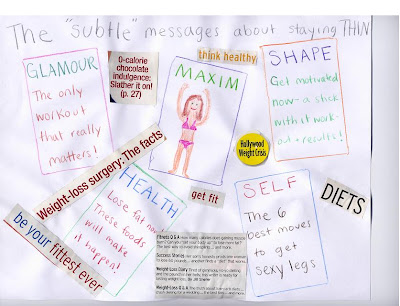 The "subtle" messages about staying THIN
GLAMOUR
The only
workout
that really
matters!
0-calorie
chocolate
indulgence:
Slather it on!
(p. 27)
think healthy
MAXIM
SHAPE
Get motivated
now - a stick
with it work-
out + results!
Hollywood
Weight Crisis
Weight-loss surgery: The facts
HEALTH
Lose fat now!
These foods
will make
it happen!
get fit
be your fittest ever
Fitness Q & A
Success Stories
Weight-Loss Diary
Weight-Loss Q & A
SELF
The 6
best moves
to get
sexy legs
DIETS